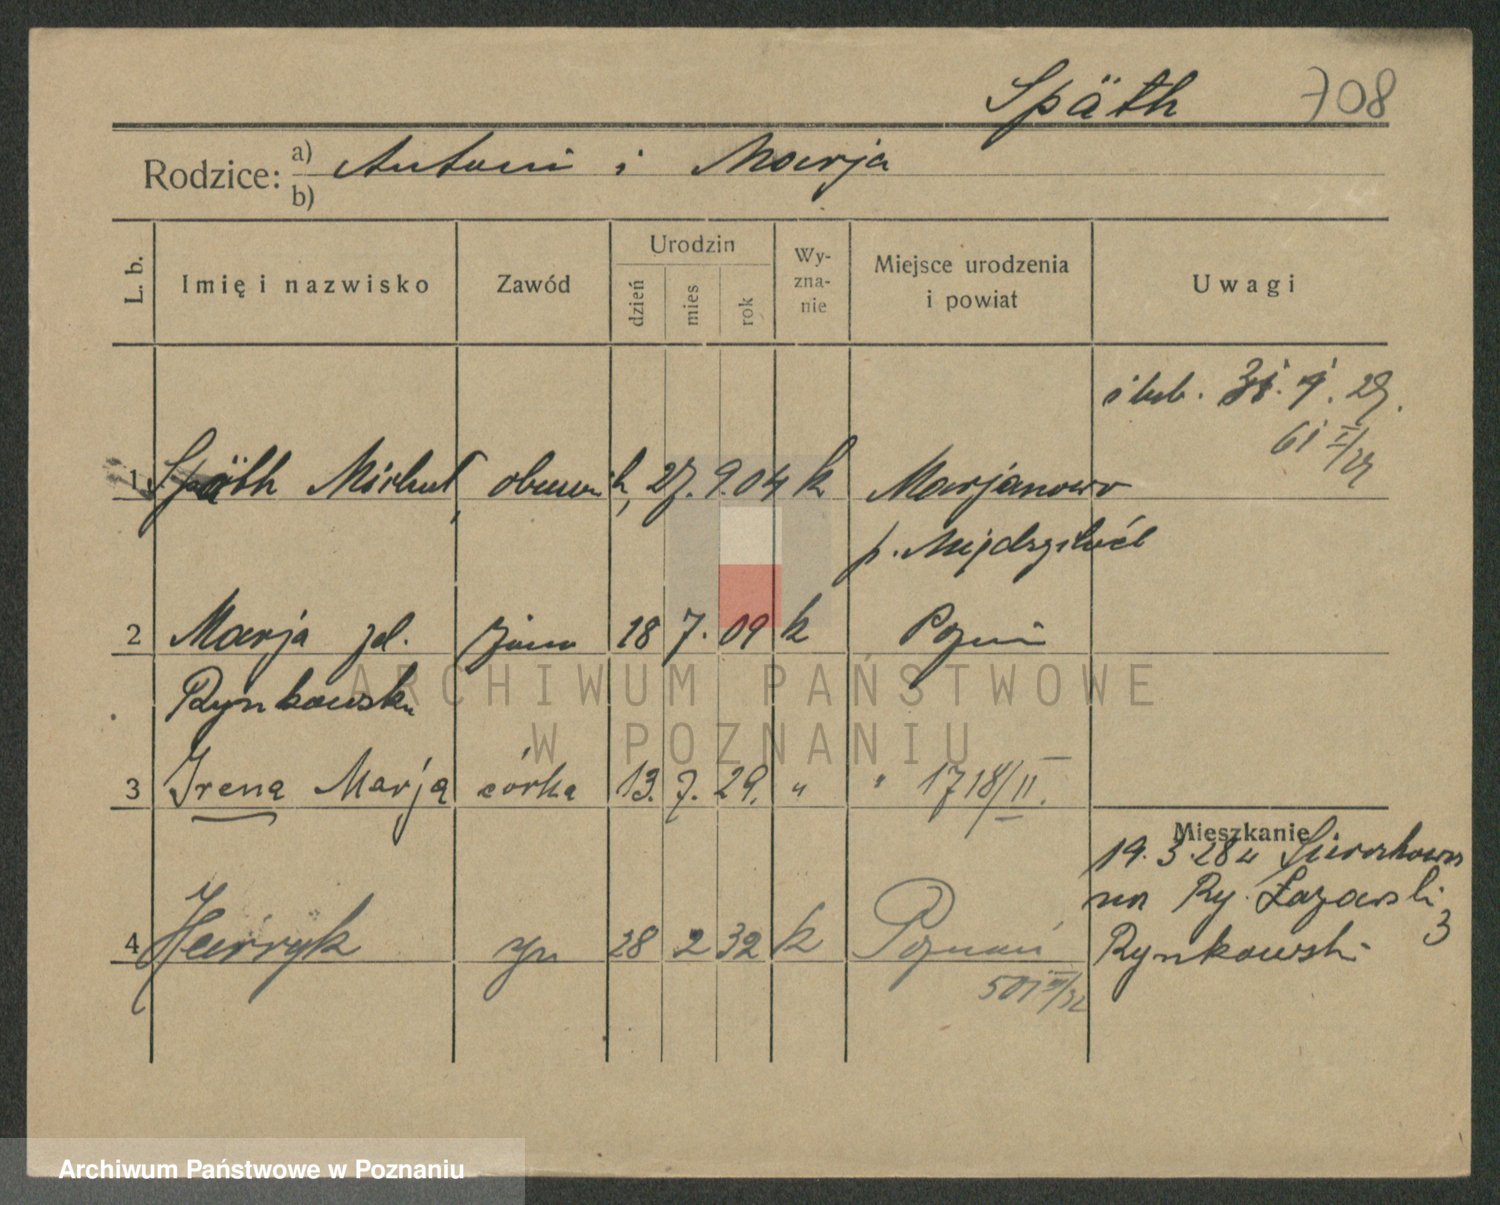 Späth 708
Rodzice: a) Antoni i Marja
b)
L. b. Imię i nazwisko Zawód Urodzin dzień mies rok Wy-zna-nie Miejsce urodzenia i powiat Uwagi
ślub. 31. 1. 29.
61 I/29
1 Späth Michał, 27. 9. 04 k Marjanowo
p. Międzychód
2 Marja zd. żona 18 7. 09 k Pozn
Rynkowska
3 Irena Marja córka 13. 7. 29. " " 1718/II.
Mieszkanie
19. 3. 28 u
4 Henryk syn 28 2 32 k Poznań
na Ry. Łazarski 3
Rynkowski
501 III/32
ARCHIWUM PAŃSTWOWE
W POZNANIU
Archiwum Państwowe w Poznaniu